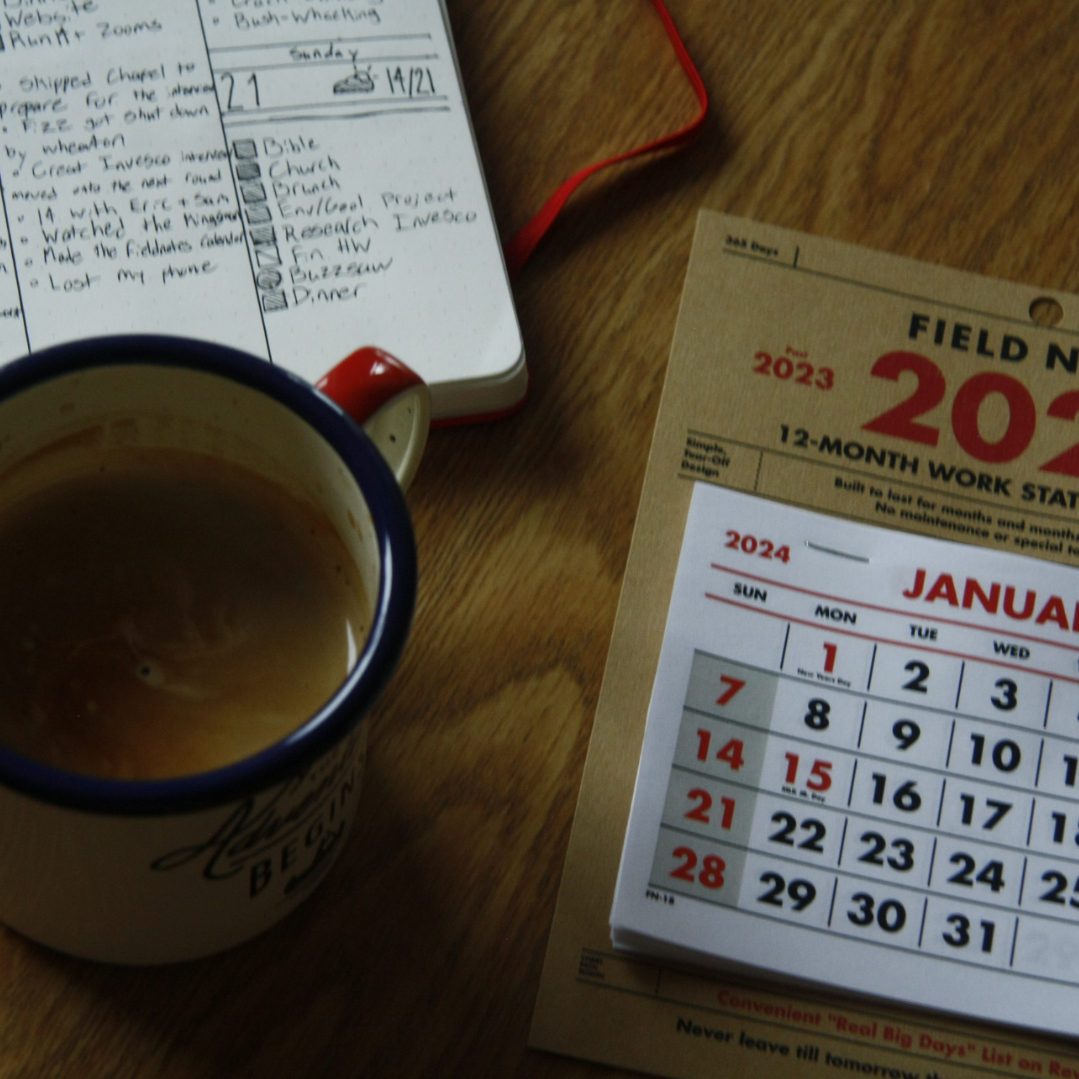 Website
Run A+ Zooms
Shipped Chapel to
prepare for the
Fizz got shut down
by wheaton
Great Invesco
moved onto the next round
14 with Eric + Sam
Watched the
Made the Fieldnotes
Lost my phone
Bush-Wheeling
Sunday
21 14/21
Bible
Church
Brunch
Env/Geol Project
Research Invesco
Fin HW
Buzzsaw
Dinner
BEGIN
365 Days
FIELD N
Past
2023
202
12-MONTH WORK STAT
Simple,
Tear-Off
Design
Built to last for months and month
No maintenance or special to
2024
JANUA
SUN MON TUE WED
1 2 3
New Years Day
7 8 9 10 1
14 15 16 17 18
MLK Jr. Day
21 22 23 24 25
28 29 30 31
FN-18
Convenient "Real Big Days" List on Re
Never leave till tomorrow th